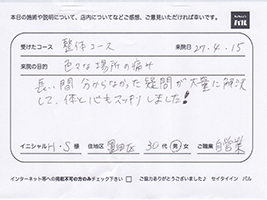 本日の施術や説明について、店内についてなどご感想、ご意見いただければ幸いです。
バル
受けたコース 整体コース 来院日 27.4.15
来院の目的 色々な場所の痛み
長い間分からなかった疑問が大量に解決
して、体と心もスッキリしました!
イニシャル H・S 様 住地区 墨田区 30 代 男 女 ご職業 自営業
インターネット等への掲載不可の方のみチェック下さい □ ご協力ありがとうございました♪ セイタイイン バル